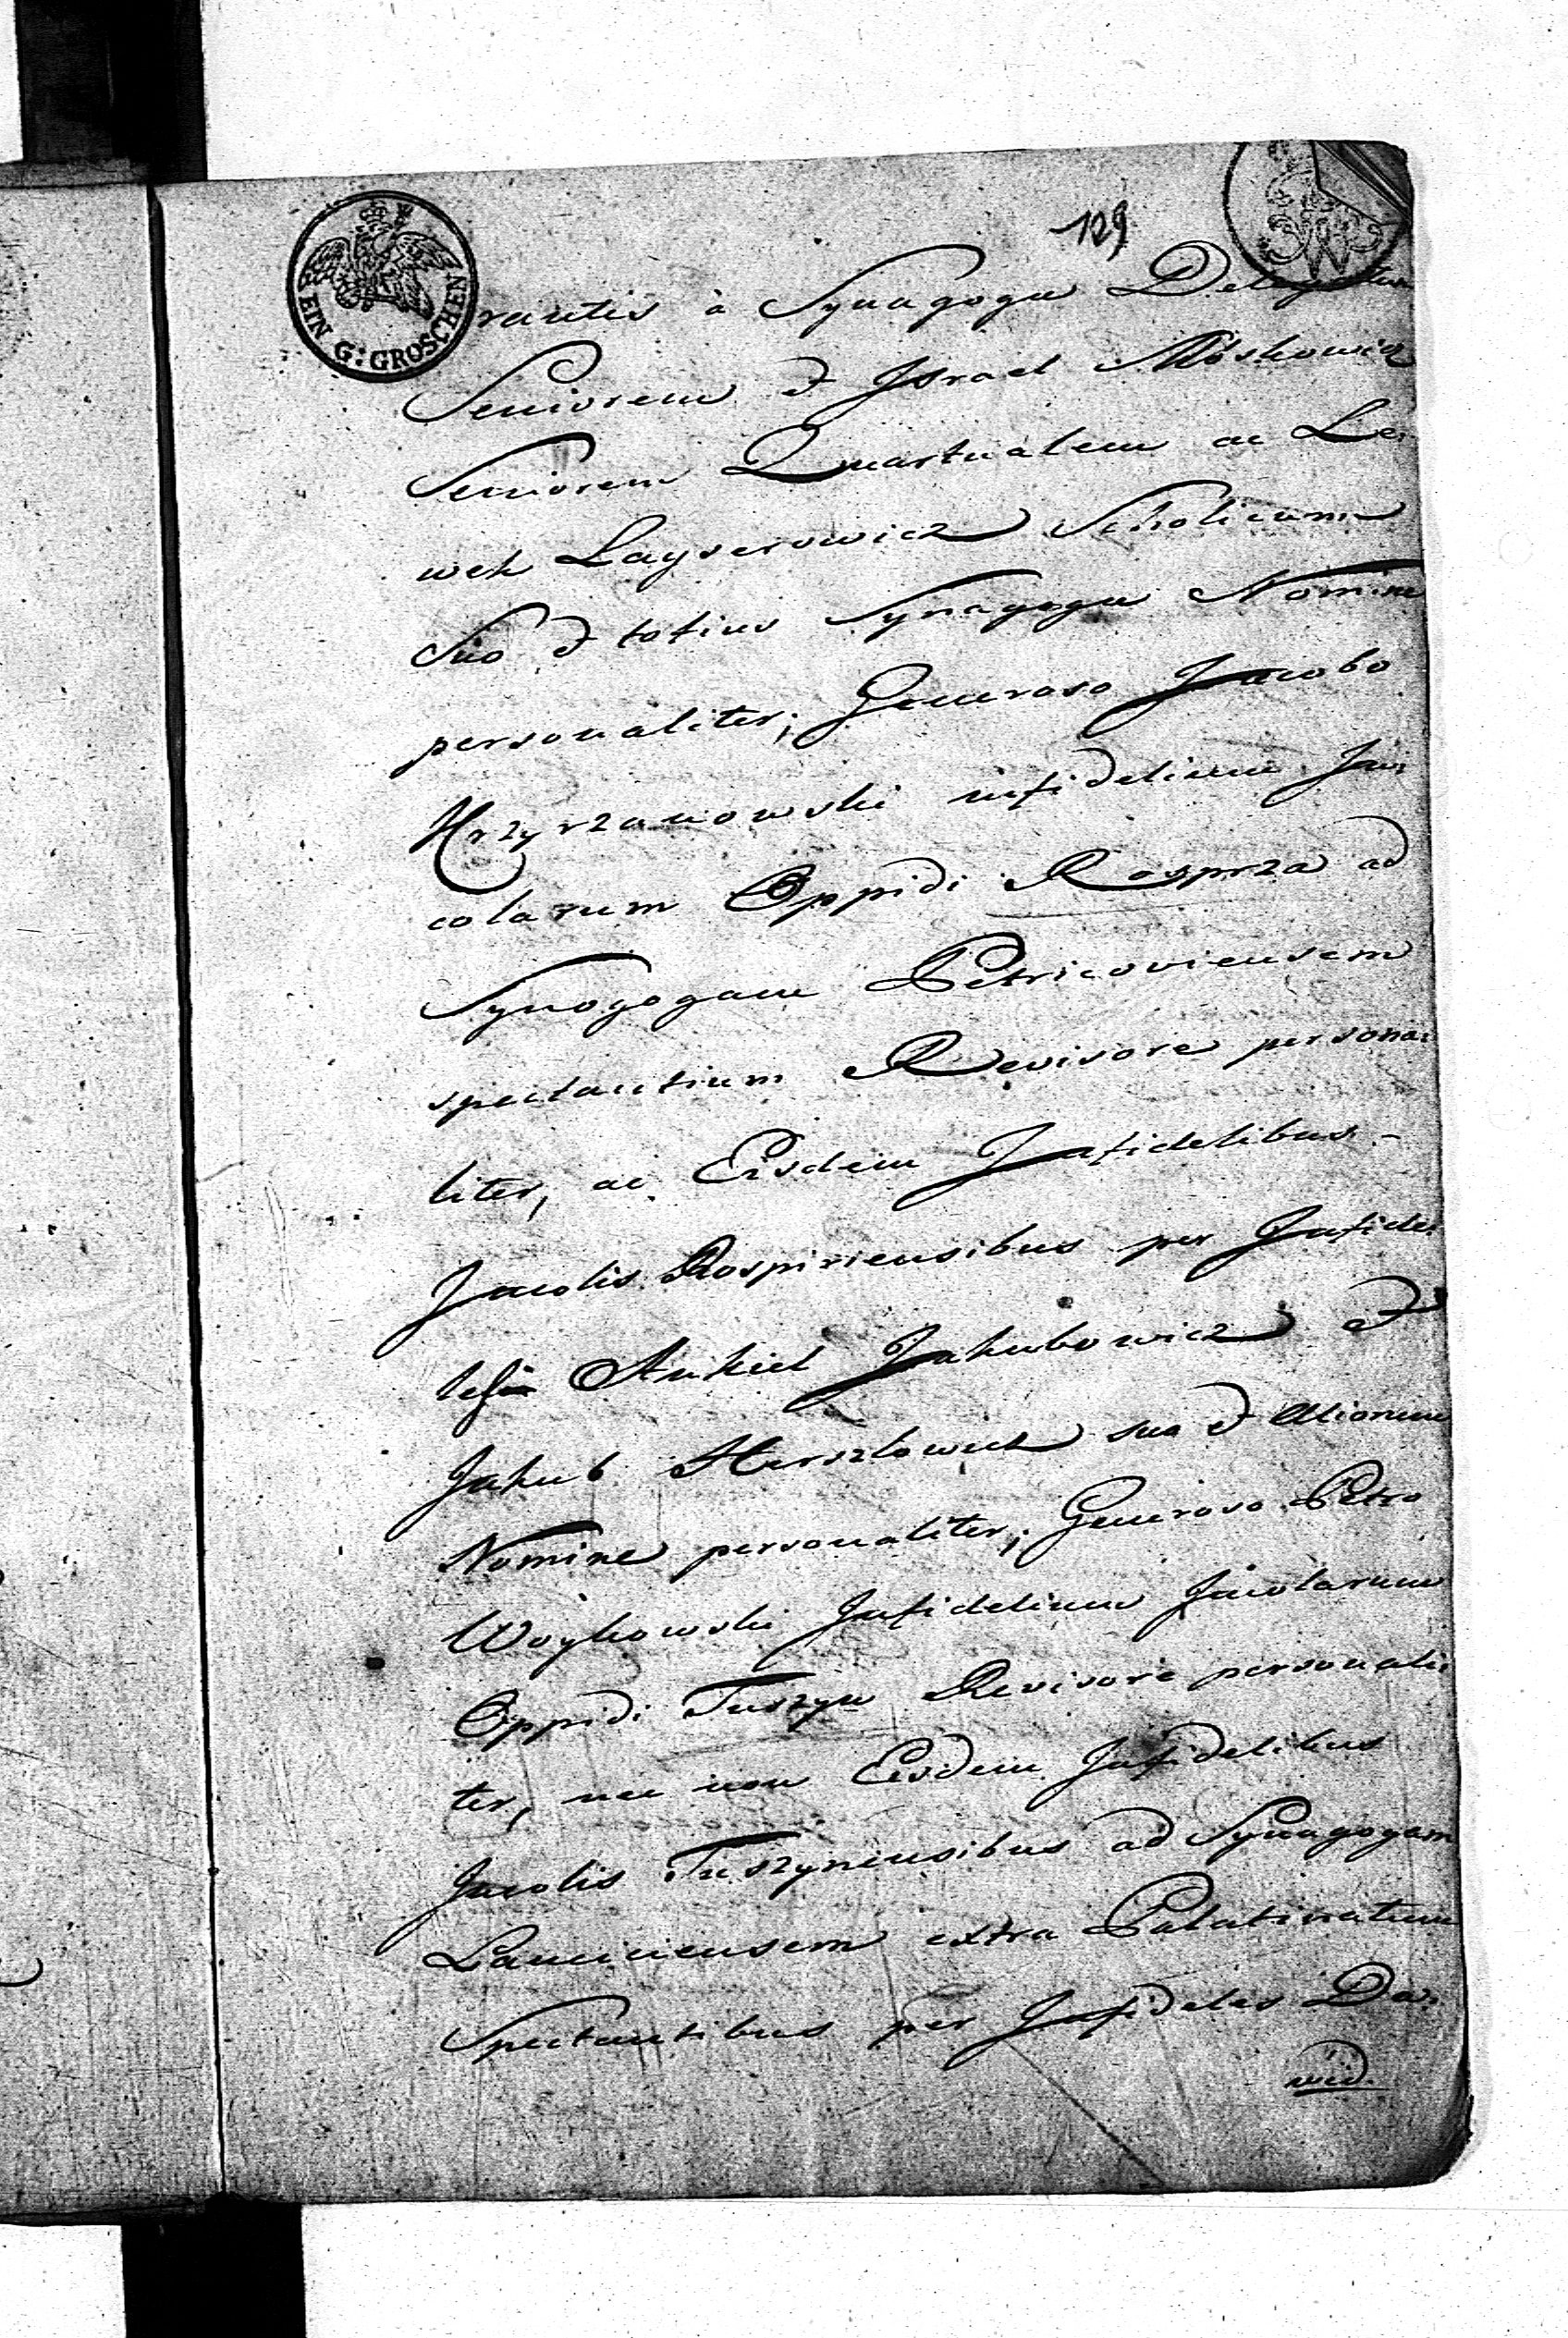 129
EIN G: GROSCHEN
rantis à Synagoga
Seniorem et Israel Moskowicz
Seniorem Quartualem ac Le:
wek Layserowicz Scholicum
Suo et totius Synagogæ Nomine
personaliter; Generoso Jacobo
Krzyrzanowski infidelium In:
colarum Oppidi Rosprza ad
Synogogam Petricoviensem
spectantium Revisore persona:
liter, ac Eisdem Infidelibus -
Incolis Rospiriensibus per Infide:
les Ankiel Jakubowicz et
Jakub Herszlowicz suo et Aliorum
Nomine personaliter; Generoso Petro
Woykowski Infidelium Incolarum
Oppidi Tuszyn Revisore personali:
ter, nec non Eisdem Infidelibus
Incolis Tuszynensibus ad Synagogam
Lanciciensem extra Palatinatum
Spectantibus per Infideles Da:
wid.